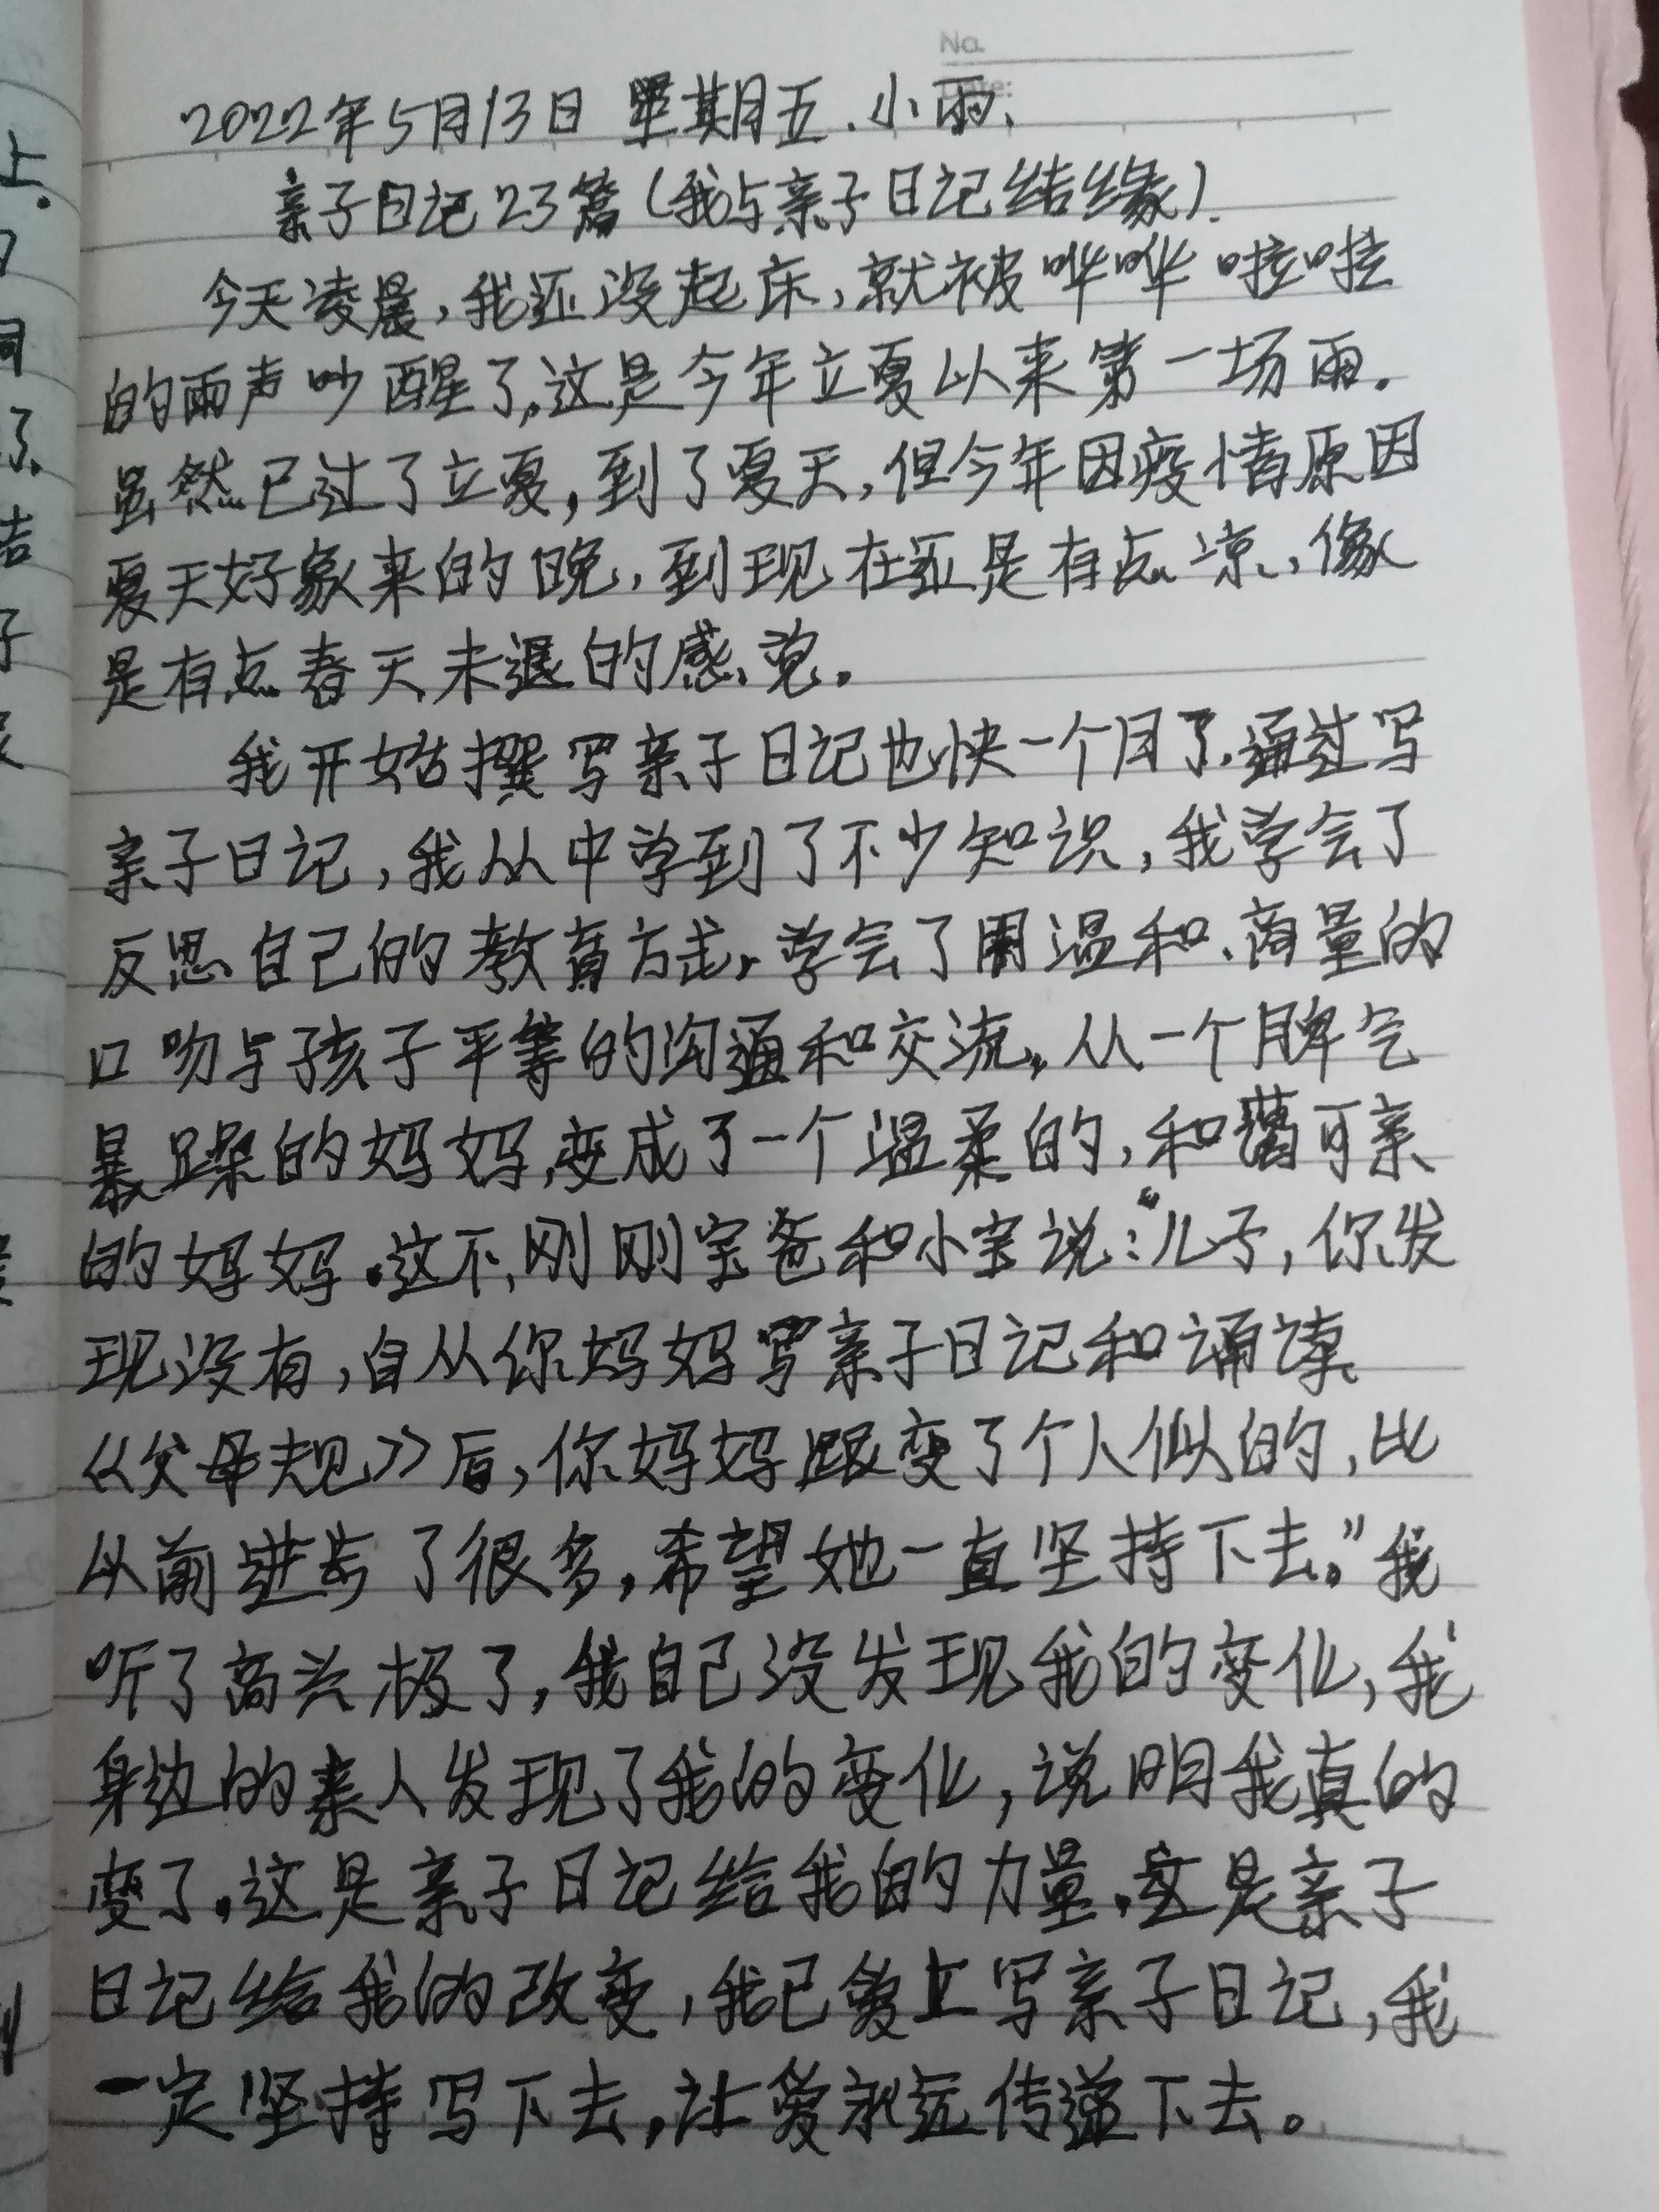 No.
Date:
2022年5月13日 星期五.小雨、
亲子日记23篇(我与亲子日记结缘).
今天凌晨,我还没起床,就被哗哗啦啦
的雨声吵醒了,这是今年立夏以来第一场雨.
虽然已过了立夏,到了夏天,但今年因疫情原因
夏天好象来的晚,到现在还是有点凉,像
是有点春天未退的感觉.
我开始撰写亲子日记也快一个月了.通过写
亲子日记,我从中学到了不少知识,我学会了
反思自己的教育方式,学会了用温和、商量的
口吻与孩子平等的沟通和交流,从一个脾气
暴躁的妈妈,变成了一个温柔的,和蔼可亲
的妈妈.这不,刚刚宝爸和小宝说:“儿子,你发
现没有,自从你妈妈写亲子日记和诵读
《父母规》后,你妈妈跟变了个人似的,比
以前进步了很多,希望她一直坚持下去。”我
听了高兴极了,我自己没发现我的变化,我
身边的亲人发现了我的变化,说明我真的
变了.这是亲子日记给我的力量.这是亲子
日记给我的改变,我已爱上写亲子日记,我
一定坚持写下去,让爱永远传递下去。